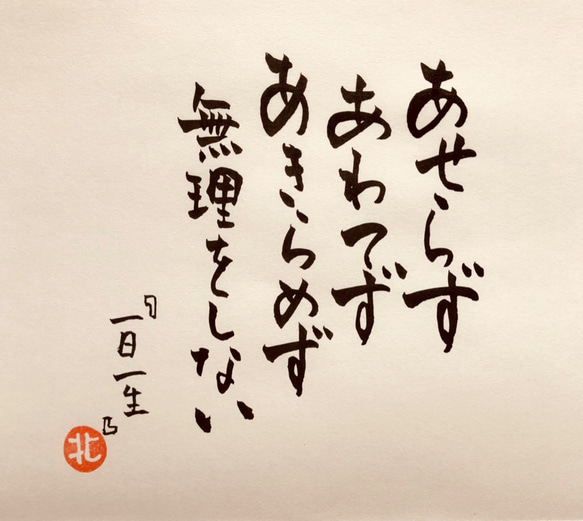 あせらず
あわてず
あきらめず
無理をしない
『一日一生』
北